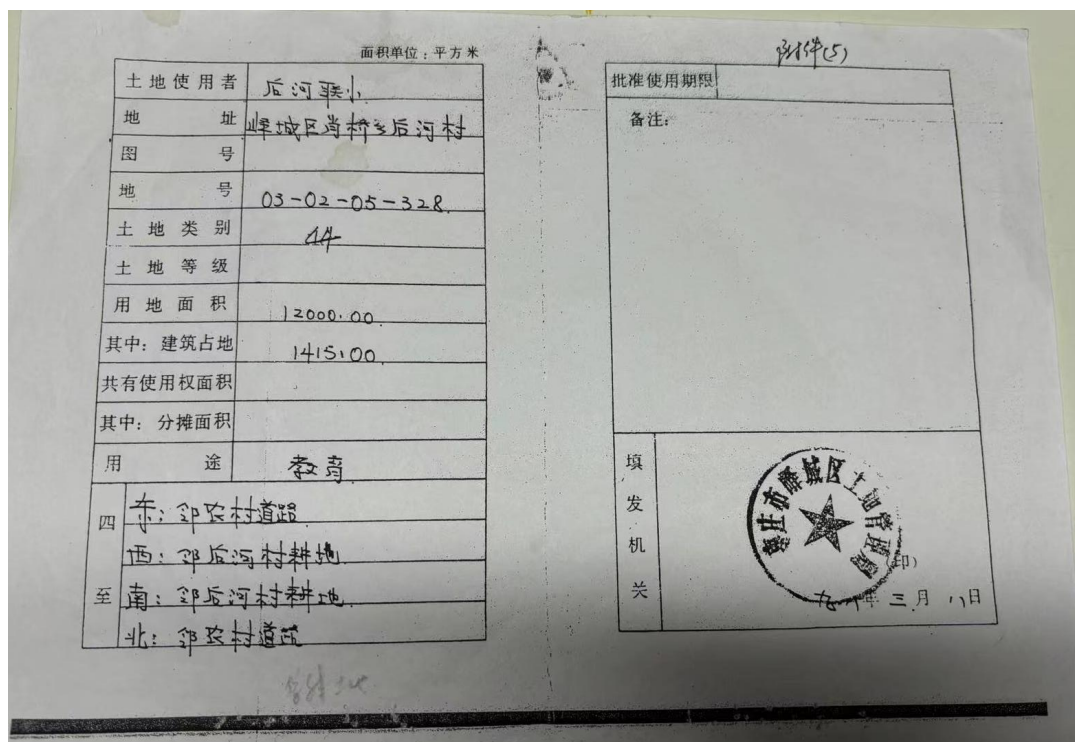 面积单位：平方米
土地使用者 后河联小
地址 峄城区肖桥乡后河村
图号
地号 03-02-05-328
土地类别 44
土地等级
用地面积 12000.00
其中：建筑占地 1415.00
共有使用权面积
其中：分摊面积
用途 教育
四至
东：邻农村道路
西：邻后河村耕地
南：邻后河村耕地
北：邻农村道路
附件(5)
批准使用期限
备注：
填发机关
枣庄市峄城区土地管理局
(印)
年三月 日